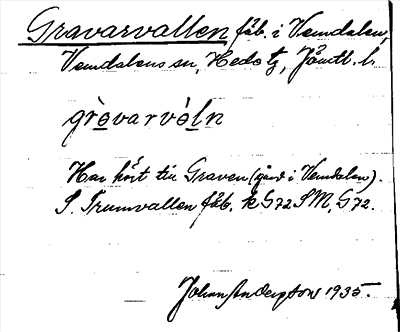 Gravarvallen fäb. i Vemdalen,
Vemdalens sn, Hede tg, Jämtl. l.
grèvarvòln
Har hört till Graven (gård i Vemdalen).
S. Trumvallen fäb. k G72 SM, G72.
Johan Anderson 1935.